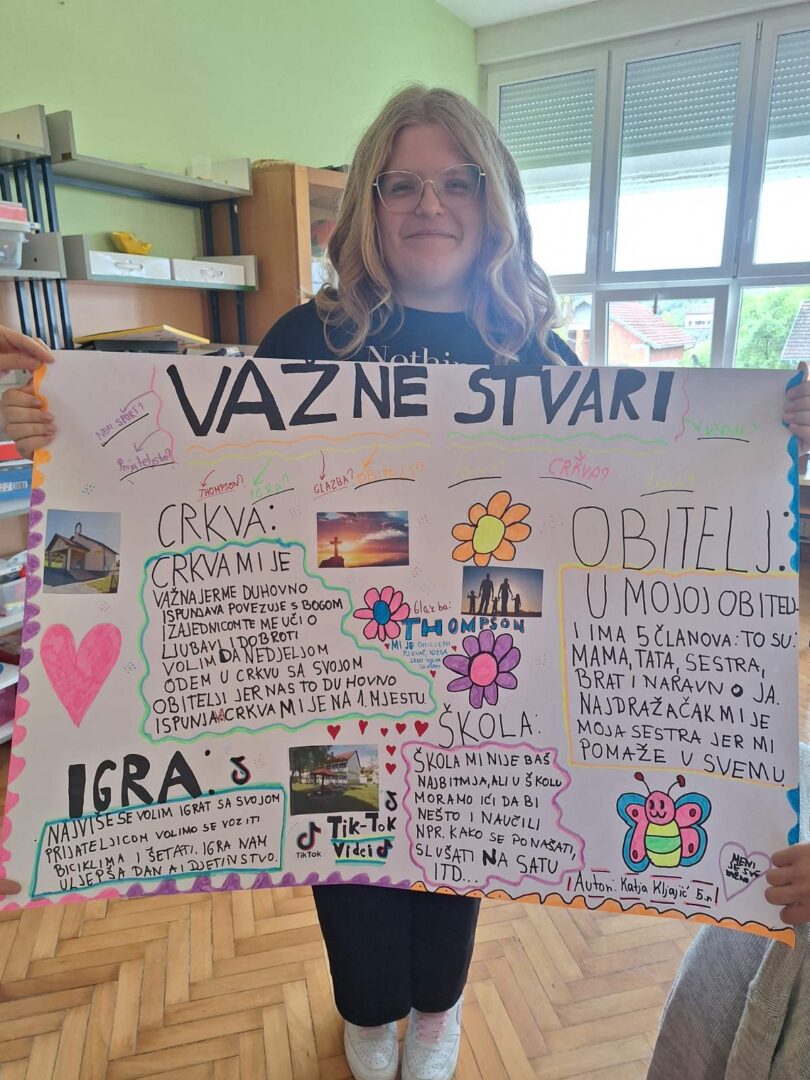 Nothin
VAŽNE STVARI
NEKI ŠPORT?
Prijateljstvo?
THOMPSON?
IGRA?
GLAZBA?
OBITELJ?
CRKVA?
CRKVA:
CRKVA MI JE
VAŽNA JER ME DUHOVNO
ISPUNJAVA POVEZUJE S BOGOM
I ZAJEDNICOM TE ME UČI O
LJUBAVI I DOBROTI
VOLIM DA NEDJELJOM
ODEM U CRKVU SA SVOJOM
OBITELJI JER NAS TO DUHOVNO
ISPUNJA. CRKVA MI JE NA 1. MJESTU
Glazba:
THOMPSON
MI JE OMILJENI
PJEVAČ, NJEGA
JAKO VOLIM
SLUŠATI
OBITELJ:
U MOJOJ OBITELJ-
I IMA 5 ČLANOVA: TO SU:
MAMA, TATA, SESTRA,
BRAT I NARAVNO JA.
NAJDRAŽA ČAK MI JE
MOJA SESTRA JER MI
POMAŽE U SVEMU.
IGRA:
NAJVIŠE SE VOLIM IGRAT SA SVOJOM
PRIJATELJICOM VOLIMO SE VOZITI
BICIKLIMA I ŠETATI. IGRA NAM
ULJEPŠA DAN A I DJETINSTVO.
TikTok
Tik-Tok
Videi
ŠKOLA:
ŠKOLA MI NIJE BAŠ
NAJBITNIJA, ALI U ŠKOLU
MORAMO IĆI DA BI
NEŠTO I NAUČILI
NPR. KAKO SE PONAŠATI,
SLUŠATI NA SATU
ITD...
Autor: Katja Kljajić 5.r
MENI
JE SVE
VAŽNO